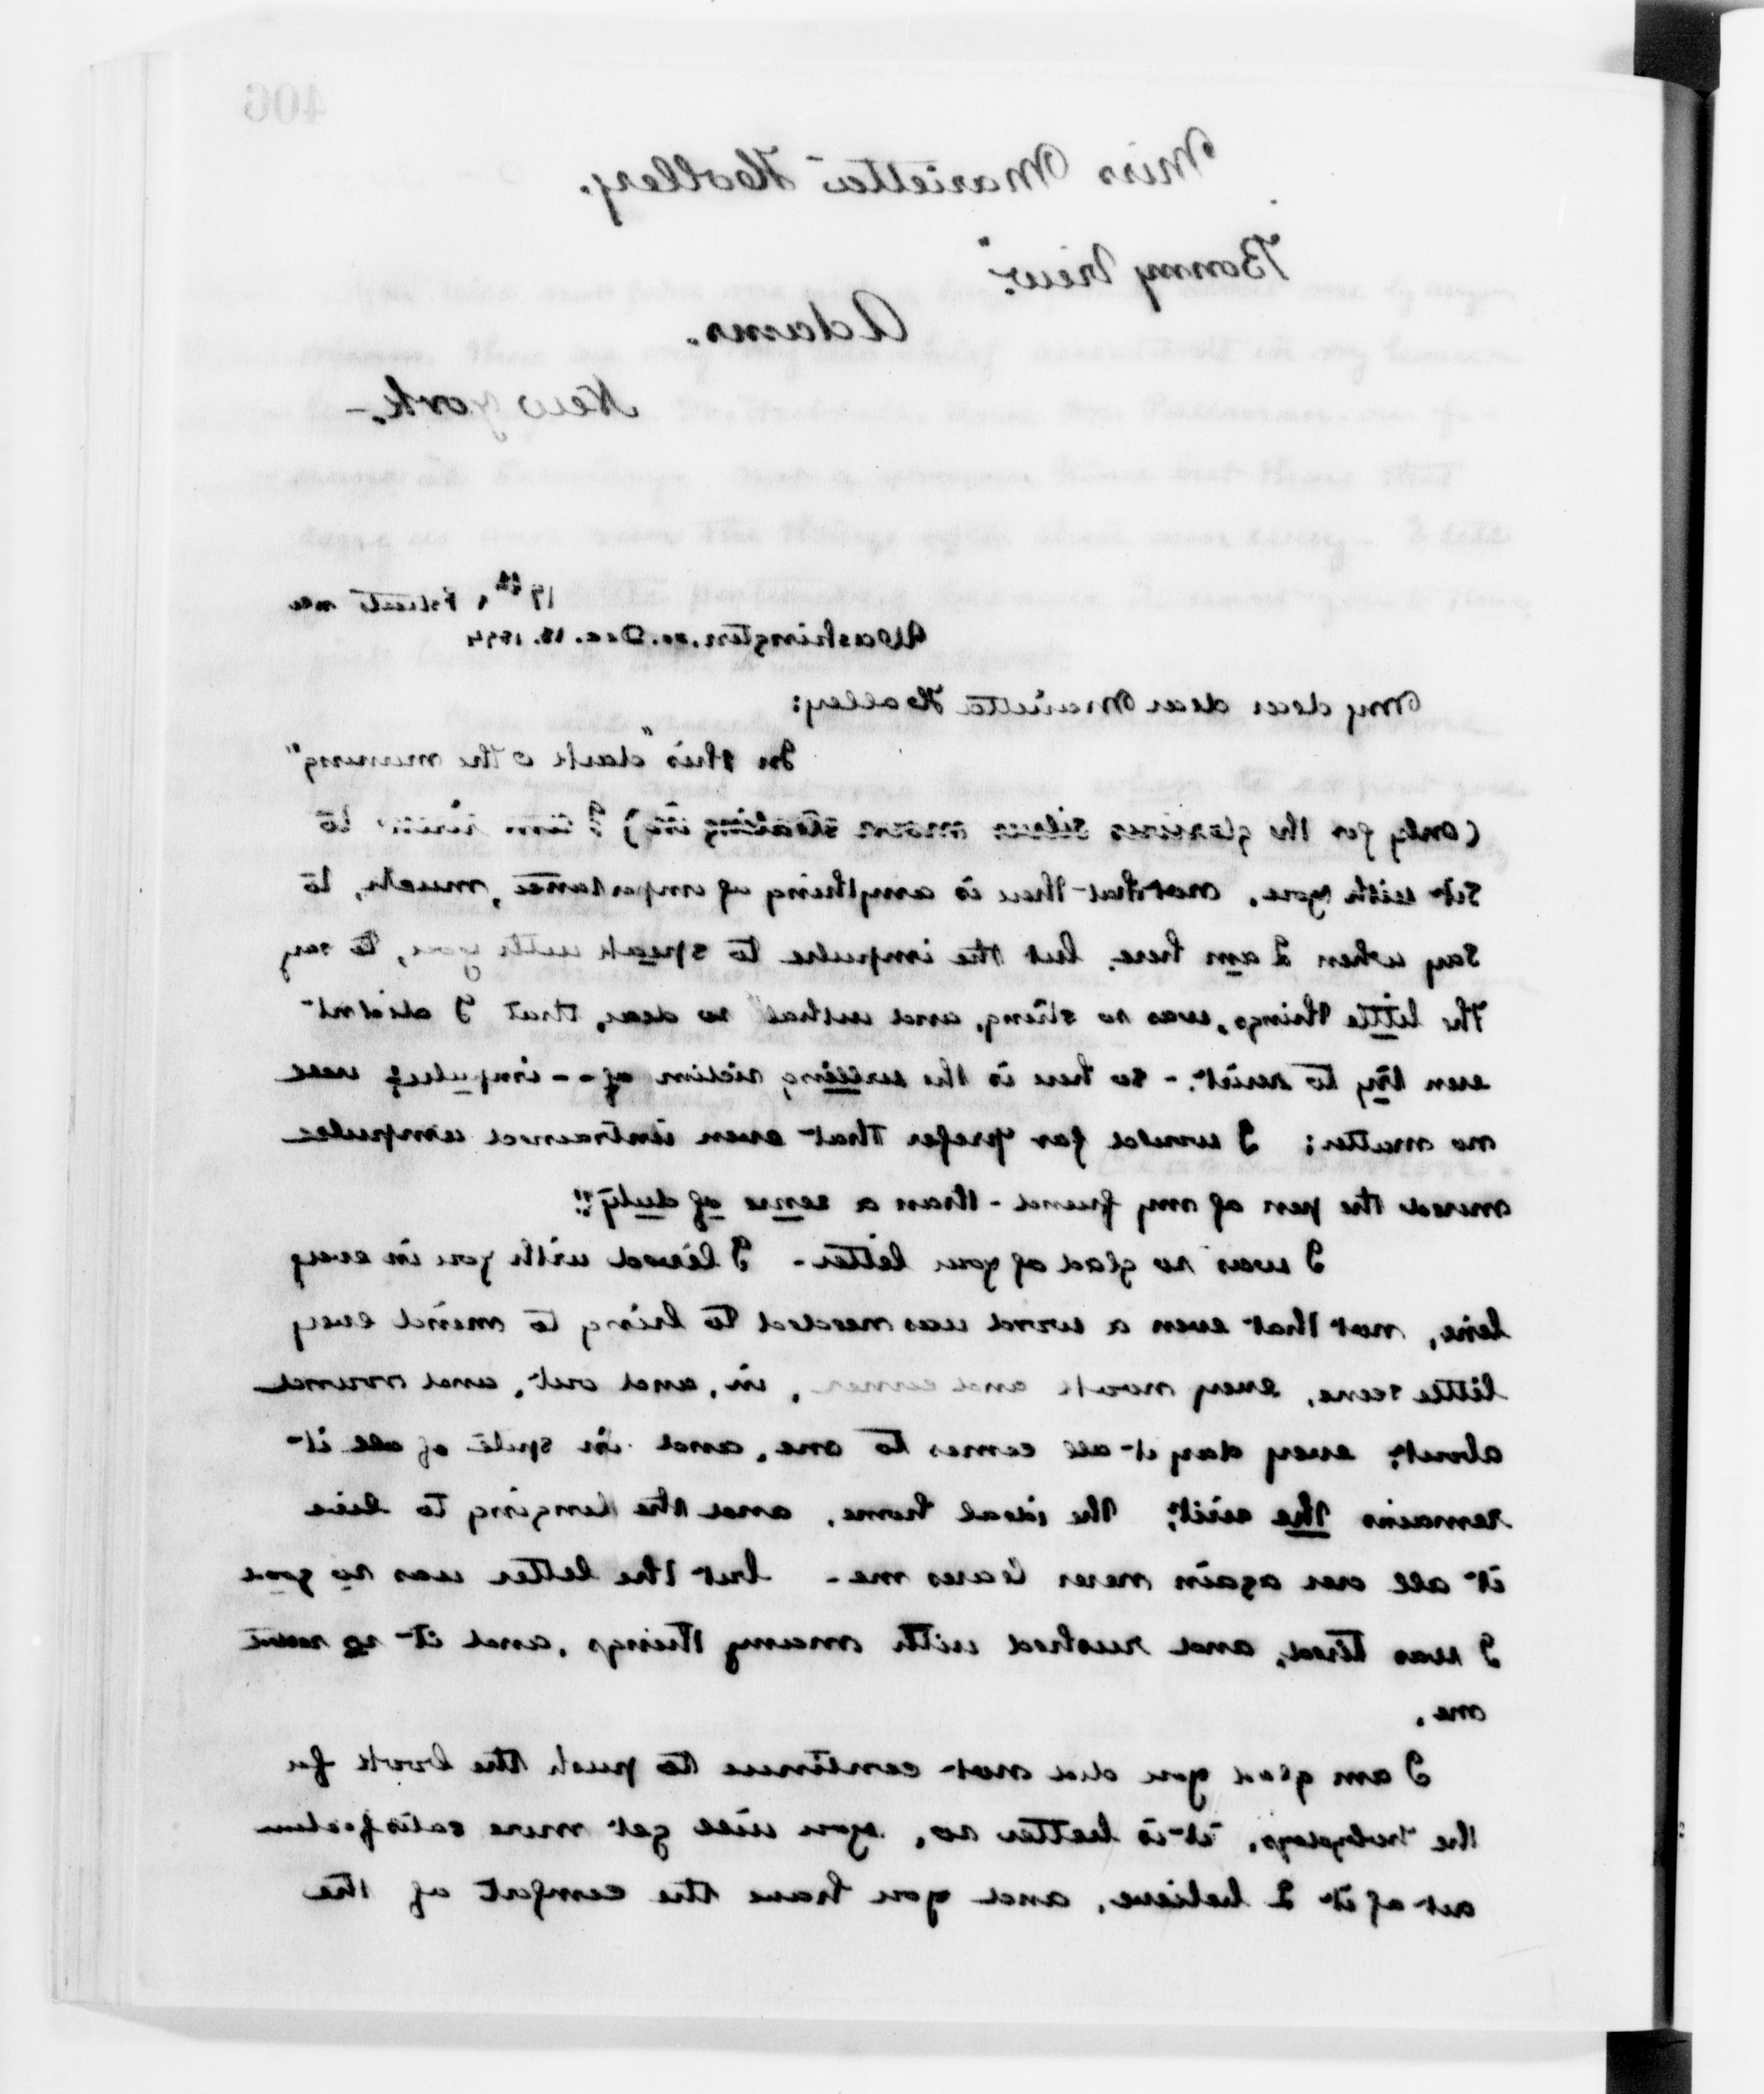 406
Miss Marietta Holley.
"Bonny View."
Adams.
New York.-
17th & F streets nw
Washington. DC. Dec. 18. 1894
My dear dear Marietta Holley:
In this "dark o the morning"
(only for the glorious silver moon stealing in) I am risin' to
sit with you. not that there is anything of importance, much, to
say when I am here. but the impulse to speak with you, to say
the little things, was so strong, and withal so dear, that I didnt
even try to resist. - so here is the willing victim of - impulse, well
no matter; I would far prefer that even untrained impulse
moved the pen of my friend - than a sense of duty"!
I was so glad of your letter - I lived with you in every
line, not that even a word was needed to bring to mind every
little scene, every nook and corner, in, and out, and around
about; every day it all comes to me, and in spite of all it
remains the visit; the ideal home, and the longing to live
it all over again never leaves me - but the letter was so good
I was tired, and rushed with many things, and it so
me.
I am glad you did not continue to push the book for
the holidays, it is better so, you will get more satisfaction
out of it I believe, and you have the comfort of the